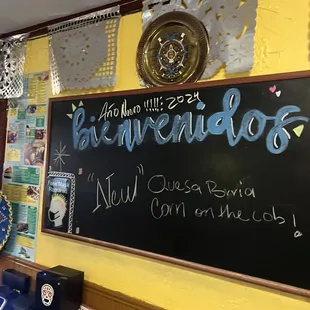 Año Nuevo !!!!! 2024
bienvenidos
"New" Quesa Birria
Corn on the cob!